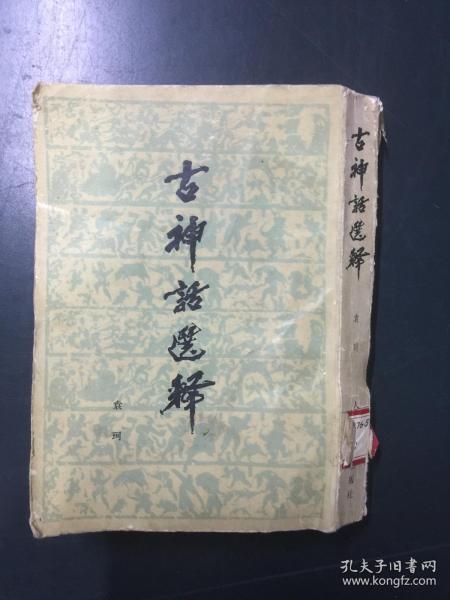 古神話選釋
袁珂
古神話選釋
袁珂
人
版社
孔夫子旧书网
www.kongfz.com